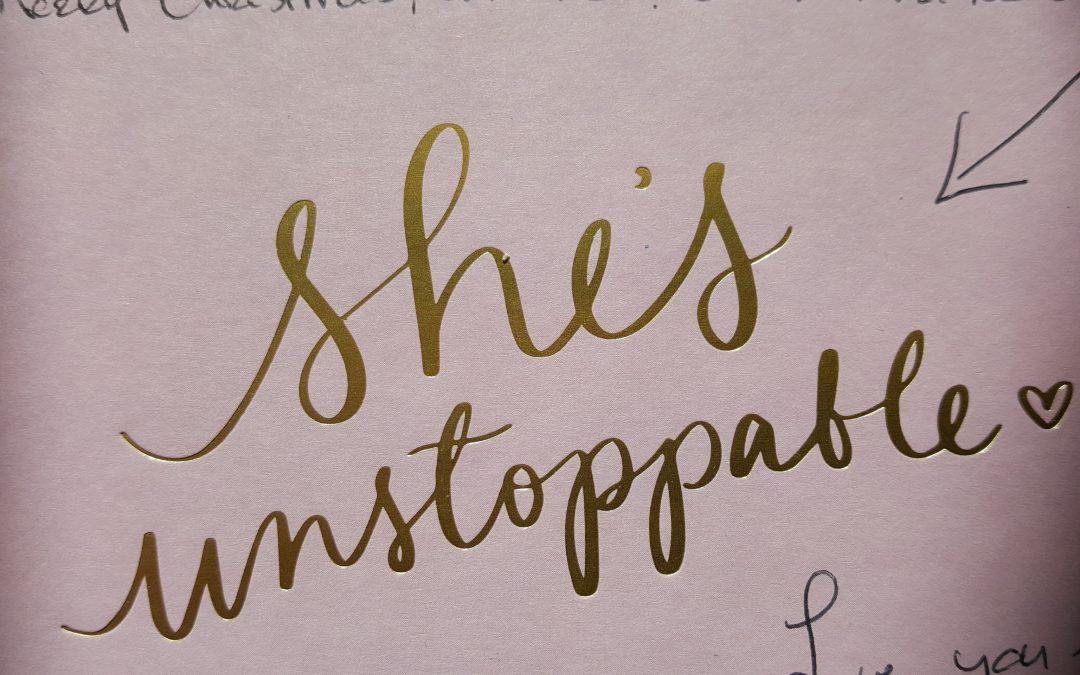 Merry Christmas,
she's
unstoppable
Love you